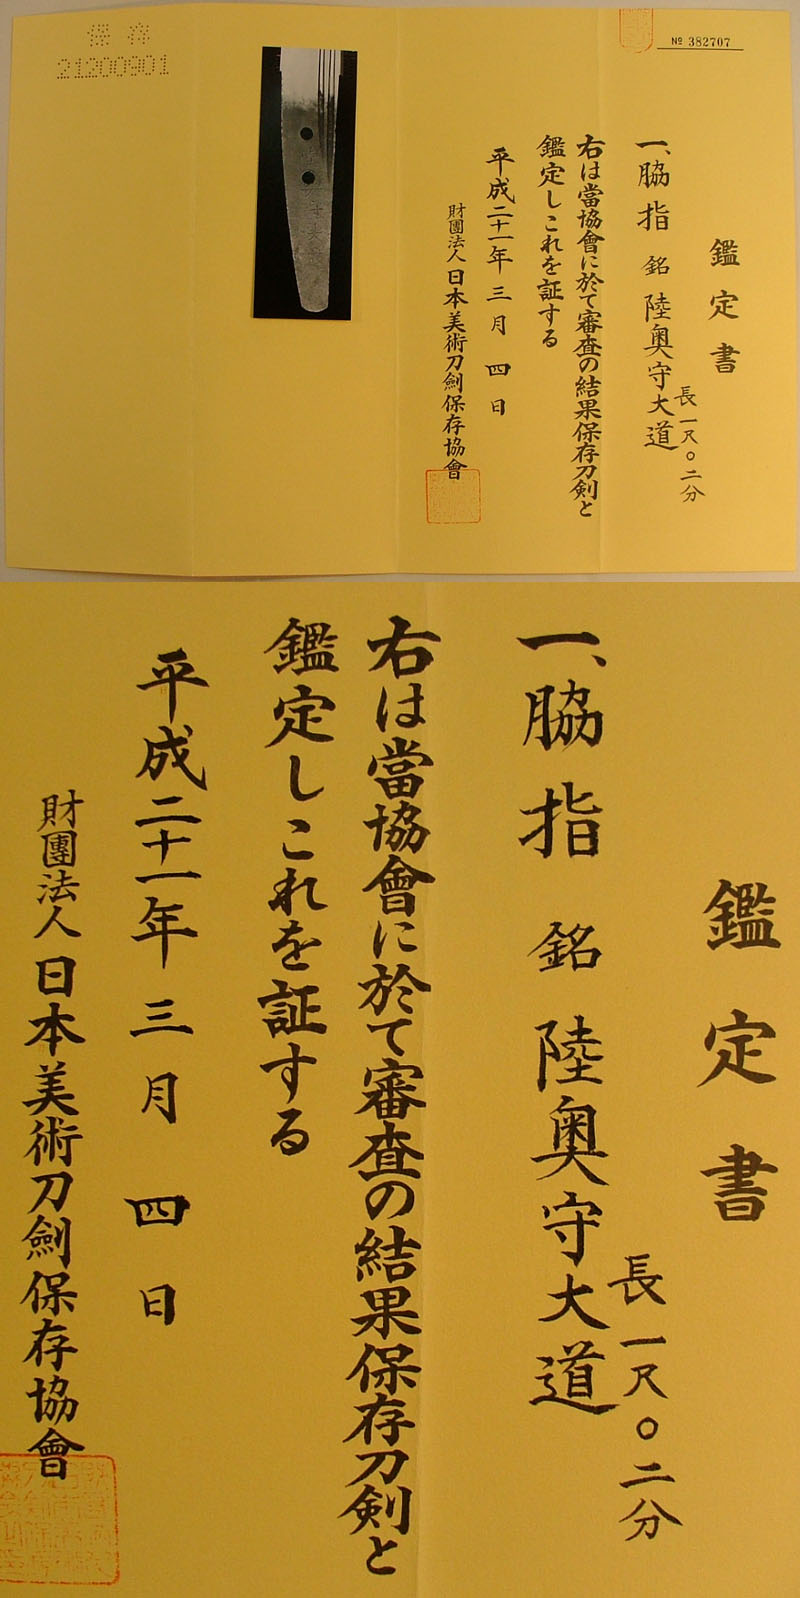 保存
21200901
№ 382707
鑑定書
一、脇指 銘 陸奥守大道
長一尺〇二分
右は當協會に於て審査の結果保存刀剣と
鑑定しこれを証する
平成二十一年三月四日
財團法人日本美術刀劍保存協會
鑑定書
一、脇指 銘 陸奥守大道
長一尺〇二分
右は當協會に於て審査の結果保存刀剣と
鑑定しこれを証する
平成二十一年三月四日
財團法人日本美術刀劍保存協會